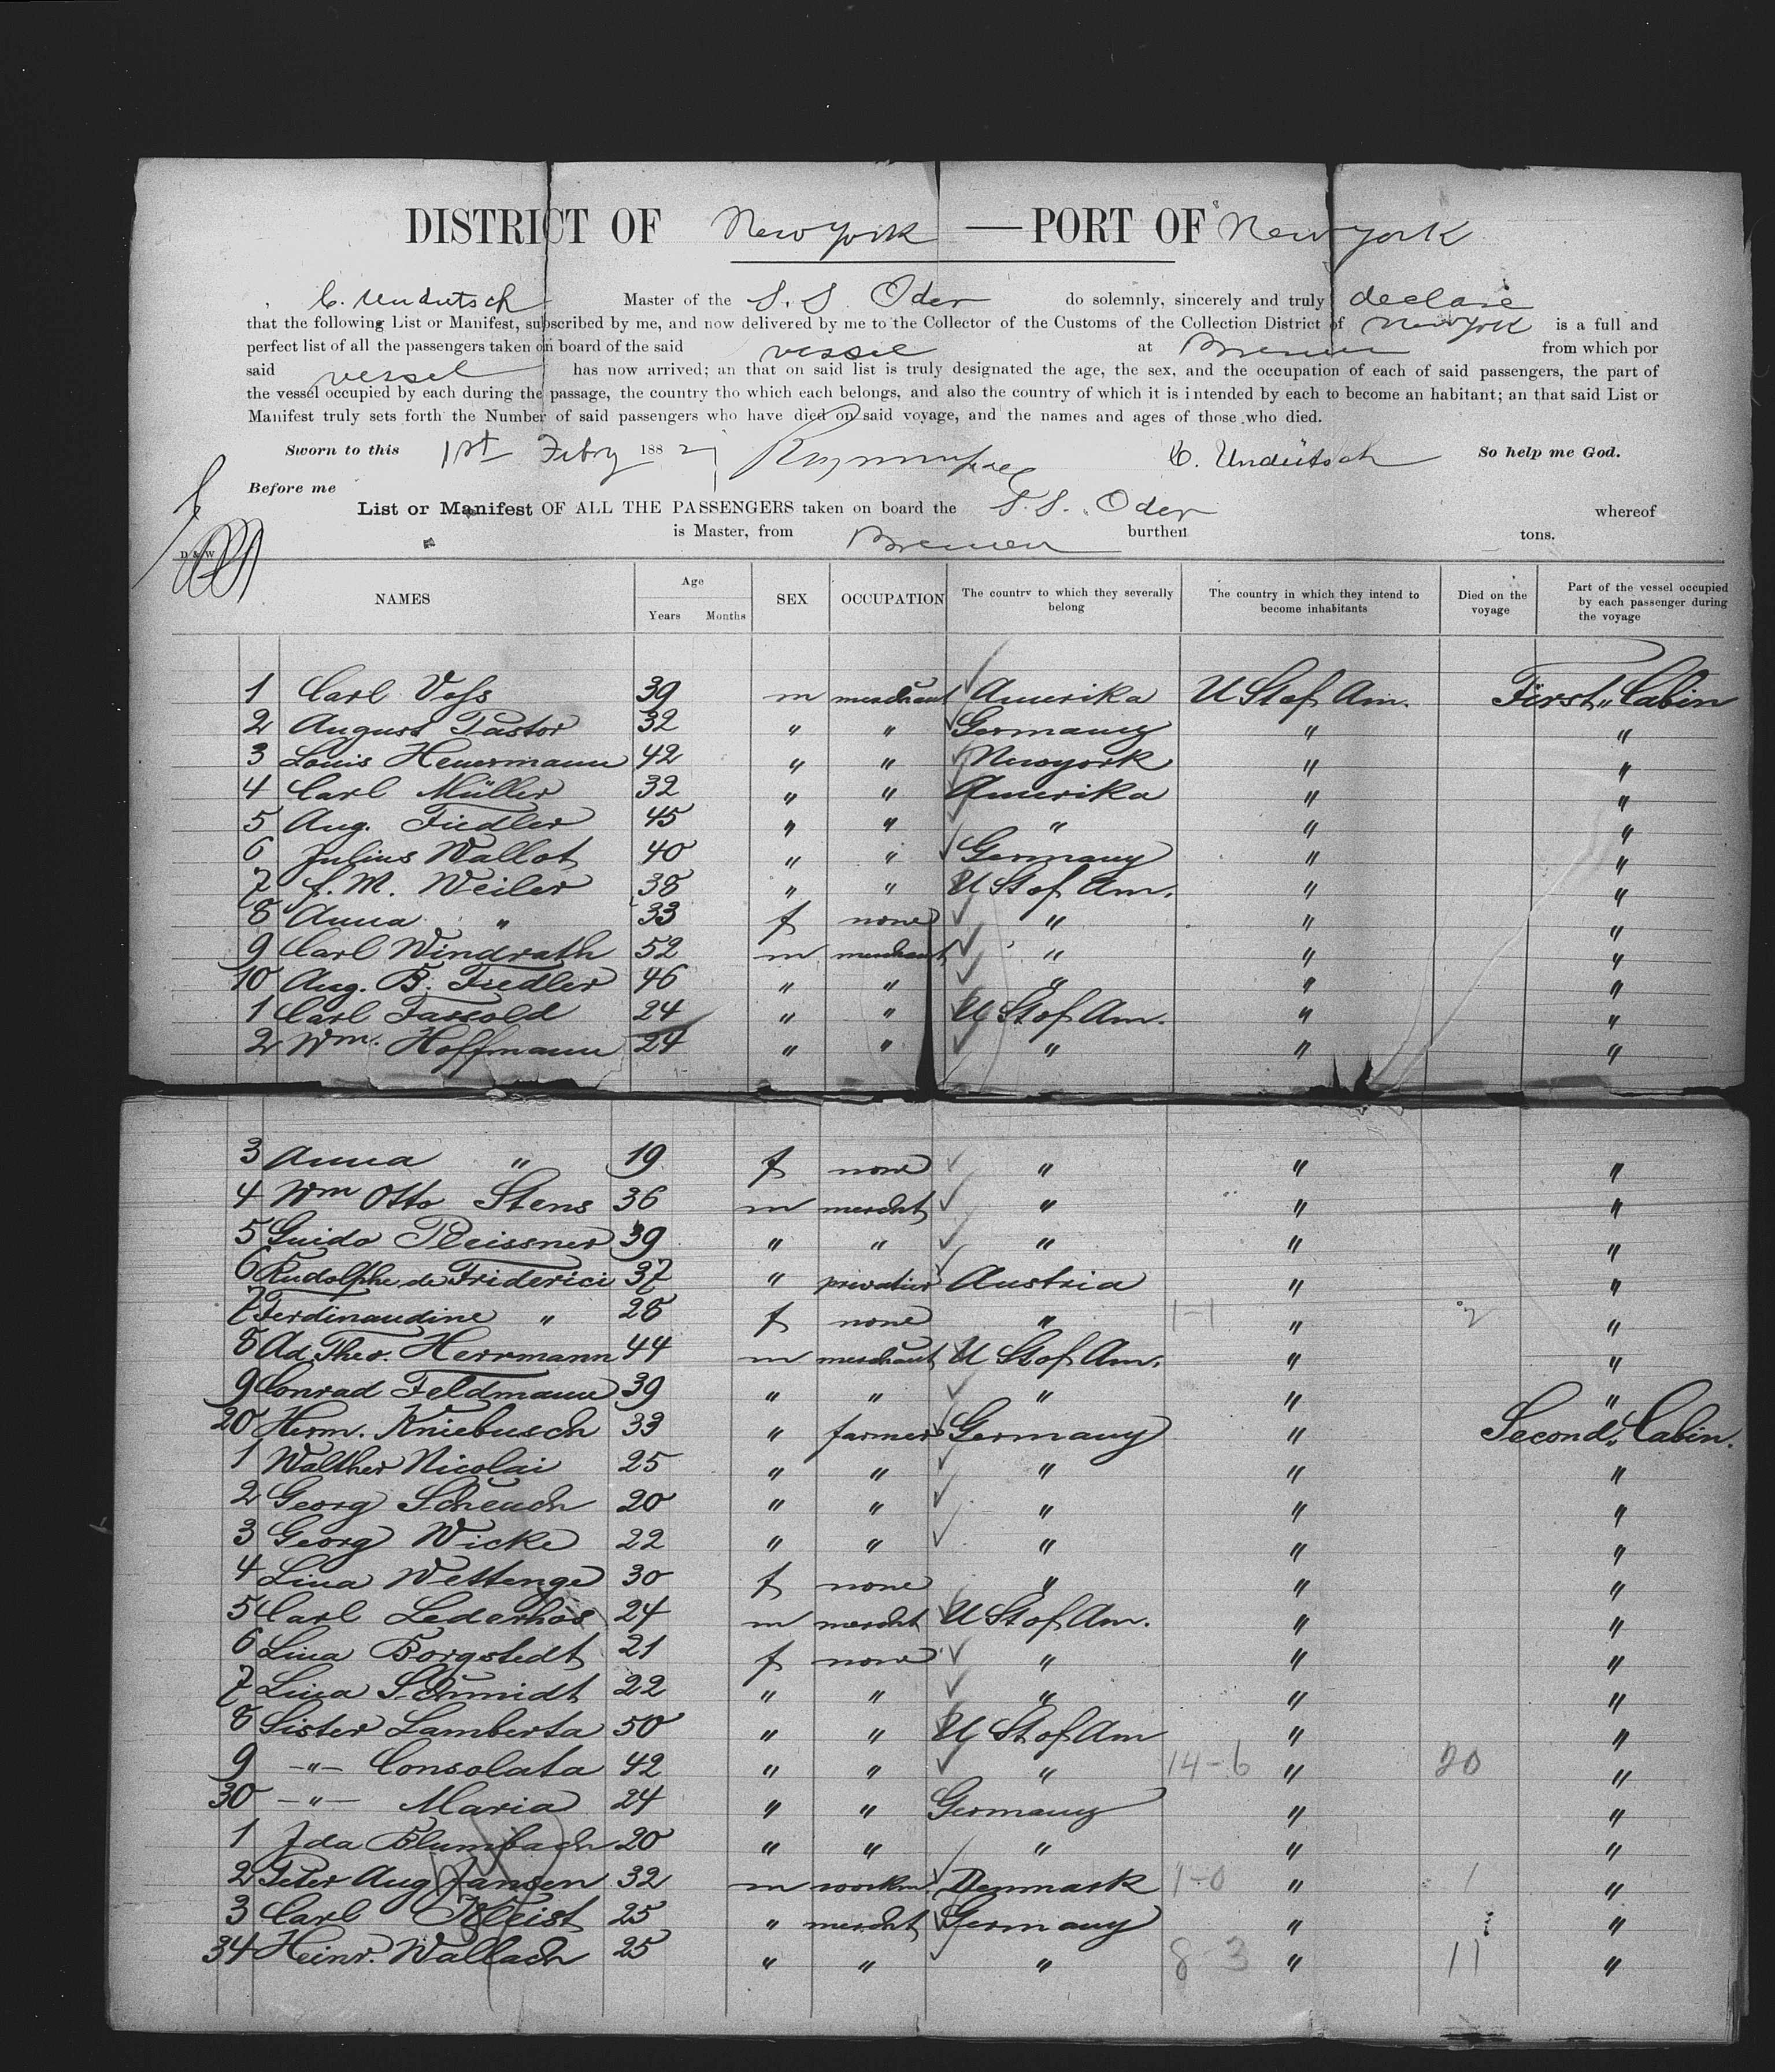 DISTRICT OF New York — PORT OF New York
C. Undütsch Master of the S. S. Oder do solemnly, sincerely and truly declare
that the following List or Manifest, subscribed by me, and now delivered by me to the Collector of the Customs of the Collection District of New York is a full and
perfect list of all the passengers taken on board of the said vessel at Bremen from which por
said vessel has now arrived; an that on said list is truly designated the age, the sex, and the occupation of each of said passengers, the part of
the vessel occupied by each during the passage, the country tho which each belongs, and also the country of which it is intended by each to become an habitant; an that said List or
Manifest truly sets forth the Number of said passengers who have died on said voyage, and the names and ages of those who died.
Sworn to this 1st Febry 1882 C. Undütsch So help me God.
Before me
List or Manifest OF ALL THE PASSENGERS taken on board the S. S. Oder whereof
is Master, from Bremen burthen tons.
D & W
NAMES Age Years Months SEX OCCUPATION The country to which they severally belong The country in which they intend to become inhabitants Died on the voyage Part of the vessel occupied by each passenger during the voyage
1 Carl Voss 39 m merchant Amerika U St of Am. First Cabin
2 August Pastor 32 " " Germany " "
3 Louis Heuermann 42 " " Newyork " "
4 Carl Müller 32 " " Amerika " "
5 Aug. Fiedler 45 " " " " "
6 Julius Wallot 40 " " Germany " "
7 f. M. Weiler 38 " " U St of Am. " "
8 Anna " 33 f none " " "
9 Carl Windrath 52 m merchant " " "
10 Aug. B. Fiedler 46 " " " " "
1 Carl Fassold 24 " " U St of Am. " "
2 Wm. Hoffmann 24 " " " " "
3 Anna " 19 f none " " "
4 Wm Otto Stens 36 m mercht " " "
5 Guido Pleissner 39 " " " " "
6 Rudolphe de Friderici 37 " privatier Austria " "
7 Ferdinandine " 28 f none " 1-1 " 2 "
8 Ad. Theo. Herrmann 44 m merchant U St of Am. " "
9 Conrad Feldmann 39 " " " " "
20 Herm. Kniebusch 33 " farmer Germany " Second Cabin.
1 Walther Nicolai 25 " " " " "
2 Georg Scheuch 20 " " " " "
3 Georg Wicke 22 " " " " "
4 Lina Wettenge 30 f none " " "
5 Carl Lederhos 24 m mercht U St of Am. " "
6 Lina Borgstedt 21 f none " " "
7 Lina Schmidt 22 " " " " "
8 Sister Lamberta 50 " " U St of Am " "
9 -"- Consolata 42 " " " 14-6 " 20 "
30 -"- Maria 24 " " Germany " "
1 Ida Blumbach 20 " " " " "
2 Peter Aug Jansen 32 m workm. Denmark 1-0 " 1 "
3 Carl Kleist 25 " mercht Germany " "
34 Heinr. Wallach 25 " " " 8 3 " 11 "